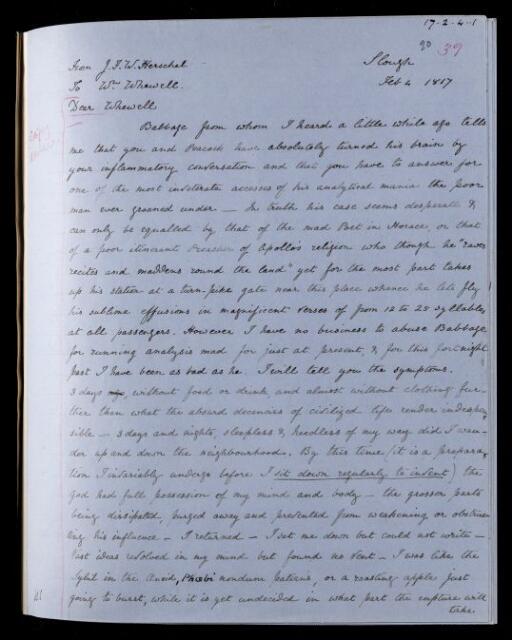 17-2-4-1
90 39
From J.F.W. Herschel
Slough
To Wm. Whewell.
Feb 4 1817
Dear Whewell
Babbage from whom I heard a little while ago tells
me that you and Peacock have absolutely turned his brain by
your inflammatory conversation and that you have to answer for
one of the most inveterate accesses of his analytical mania the poor
man ever groaned under — In truth his case seems desperate &
can only be equalled by that of the mad Poet in Horace, or that
of a poor itinerant Preacher of Apollo's religion who though he "raves
recites and maddens round the land" yet for the most part takes
up his station at a turn-pike gate near this place whence he lets fly
his sublime effusions in magnificent verses of from 12 to 25 syllables
at all passengers. However I have no business to abuse Babbage
for running analysis mad for just at present, & for this fortnight
past I have been as bad as he. I will tell you the symptoms.
3 days without food or drink and almost without clothing fur-
ther than what the absurd decencies of civilized life render indispen
sible — 3 days and nights, sleepless & heedless of my way did I wan-
der up and down the neighbourhood. By this time (it is a prepara-
tion I invariably undergo before I sit down regularly to invent) the
god had full possession of my mind and body — the grosser parts
being dissipated, purged away and prevented from weakening or obstruc
ting his influence — I returned — I set me down but could not write —
Vast ideas revolved in my mind but found no vent — I was like the
Sybil in the Aneid, Phœbi nondum patiens, or a roasting apple just
going to burst, while it is yet undecided in what part the rupture will
take.